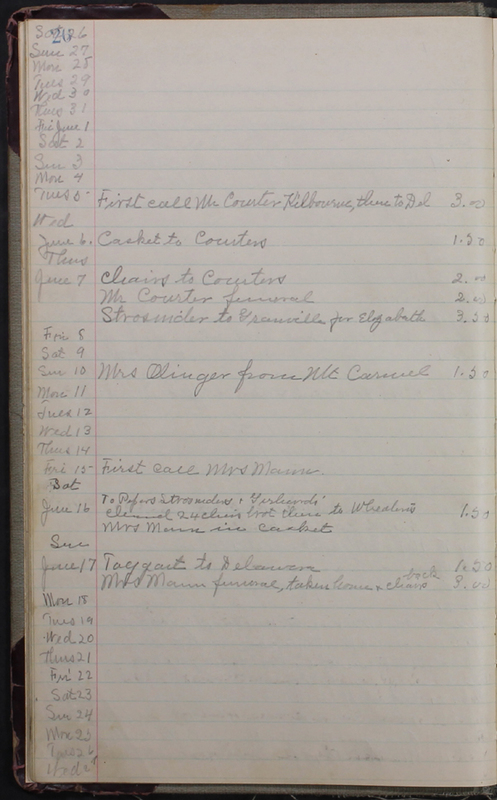 26
Sat 26
Sun 27
Mon 28
Tues 29
Wed 30
Thurs 31
Fri June 1
Sat 2
Sun 3
Mon 4
Tues 5 First call Mr Courter Kilbourne, thence to Del 3.00
Wed
June 6. Casket to Courters 1.50
Thurs
June 7 Chairs to Courters 2.00
Mr Courter funeral 2.00
Strosnider to Granville for Elizabeth 3.50
Fri 8
Sat 9
Sun 10 Mrs Olinger from Mt Carmel 1.50
Mon 11
Tues 12
Wed 13
Thurs 14
Fri 15 First call Mrs Mann
Sat
To Strosniders +
June 16 24 chairs to 1.50
Mrs Mann in casket
Sun
June 17 Taggart to Delaware 1.50
back
Mrs Mann funeral, taken home & chairs 3.00
Mon 18
Tues 19
Wed 20
Thurs 21
Fri 22
Sat 23
Sun 24
Mon 25
Tues 26
Wed